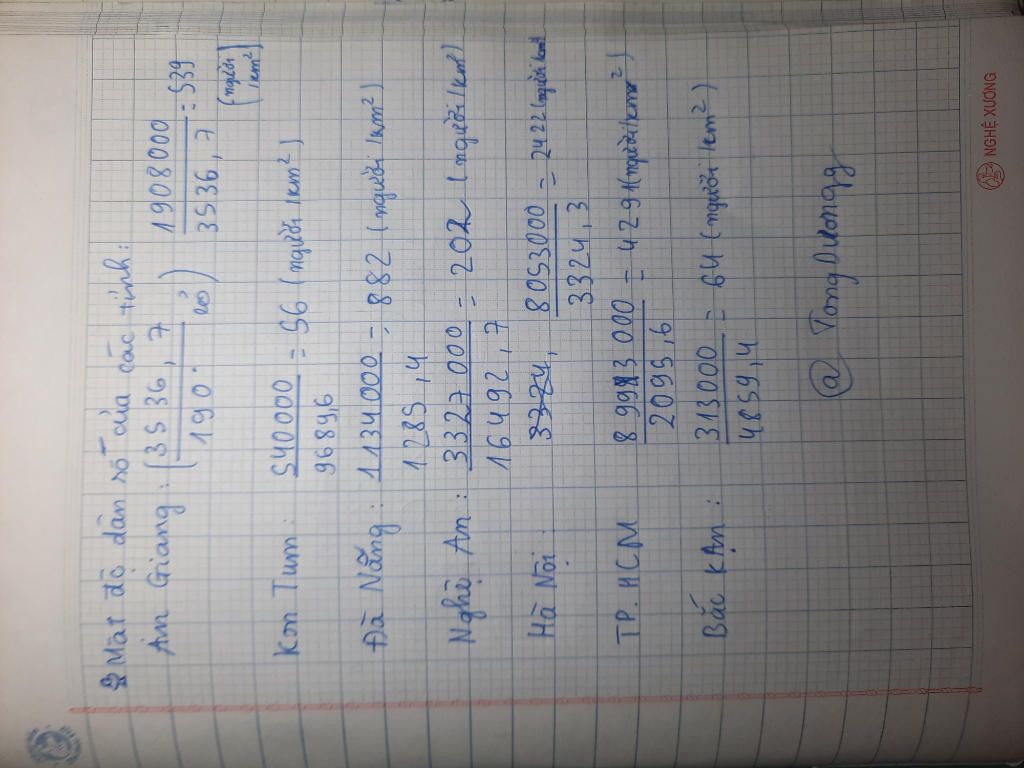 Mât đô dân số của các tỉnh:
An Giang: (3536,7 / 190. số) 1908000 / 3536,7 = 539 (người /km²)
Kon Tum: 540000 / 9689,6 = 56 (người /km²)
Đà Nẵng: 1134000 / 1285,4 = 882 (người /km²)
Nghệ An: 3327000 / 16492,7 = 202 (người /km²)
Hà Nội: 3324, 8053000 / 3324,3 = 2422 (người /km²)
TP. HCM 8993000 / 2095,6 = 4291 (người /km²)
Bắc Kạn: 313000 / 4859,4 = 64 (người /km²)
@ Tong Duongg
NGHỆ XƯƠNG